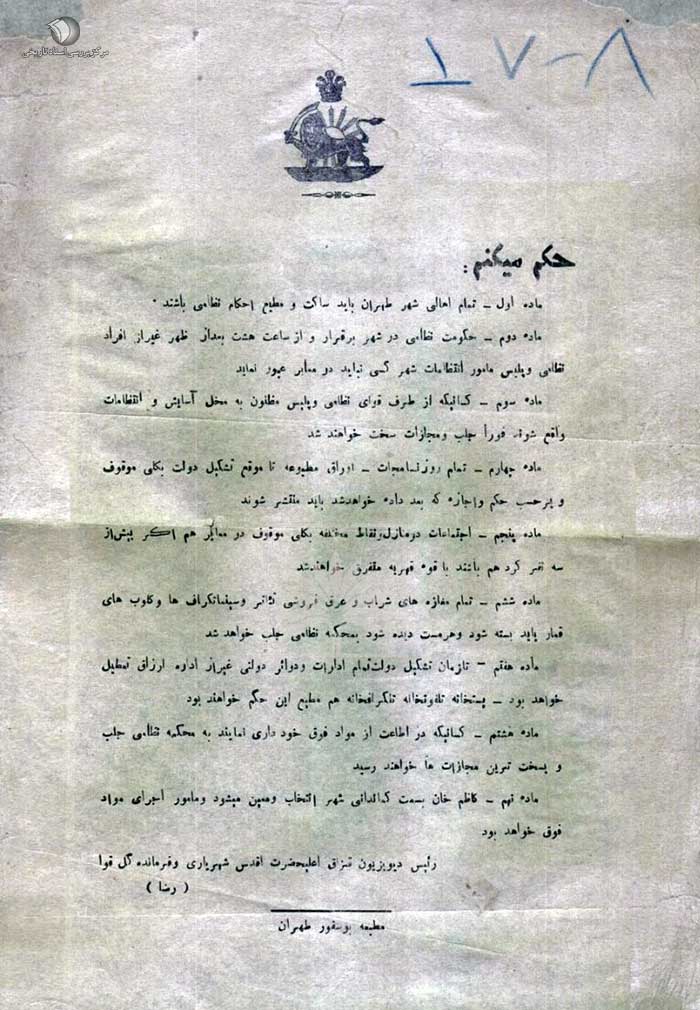 مرکز بررسی اسناد تاریخی
۸-۷
حکم میکنم:
ماده اول – تمام اهالی شهر طهران باید ساکت و مطیع احکام نظامی باشند ۰
ماده دوم – حکومت نظامی در شهر برقرار و از ساعت هشت بعداز ظهر غیراز افراد
نظامی و پلیس مامور انتظامات شهر کسی نباید در معابر عبور نماید
ماده سوم – کسانیکه از طرف قوای نظامی وپلیس مظنون به مخل آسایش و انتظامات
واقع شوند فوراً جلب ومجازات سخت خواهند شد
ماده چهارم – تمام روزنامجات – اوراق مطبوعه تا موقع تشکیل دولت بکلی موقوف
و برحسب حکم واجازه که بعد داده خواهدشد باید منتشر شوند
ماده پنجم – اجتماعات درمنازل ونقاط مختلفه بکلی موقوف در معابر هم اگر بیش از
سه نفر گرد هم باشند با قوه قهریه متفرق خواهندشد
ماده ششم – تمام مغازه های شراب و عرق فروشی تئاتر وسینماتگراف ها وکلوب های
قمار باید بسته شود وهرمست دیده شود بمحکمه نظامی جلب خواهد شد
ماده هفتم – تازمان تشکیل دولت تمام ادارات ودوائر دولتی غیراز اداره ارزاق تعطیل
خواهد بود – پستخانه تلفونخانه تلگرافخانه هم مطیع این حکم خواهند بود
ماده هشتم – کسانیکه در اطاعت از مواد فوق خود داری نمایند به محکمه نظامی جلب
و بسخت ترین مجازات ها خواهند رسید
ماده نهم – کاظم خان بسمت کماندانی شهر انتخاب ومعین میشود ومامور اجرای مواد
فوق خواهد بود
رئیس دیویزیون قزاق اعلیحضرت اقدس شهریاری وفرمانده کل قوا
( رضا )
مطبعه بوسفور طهران